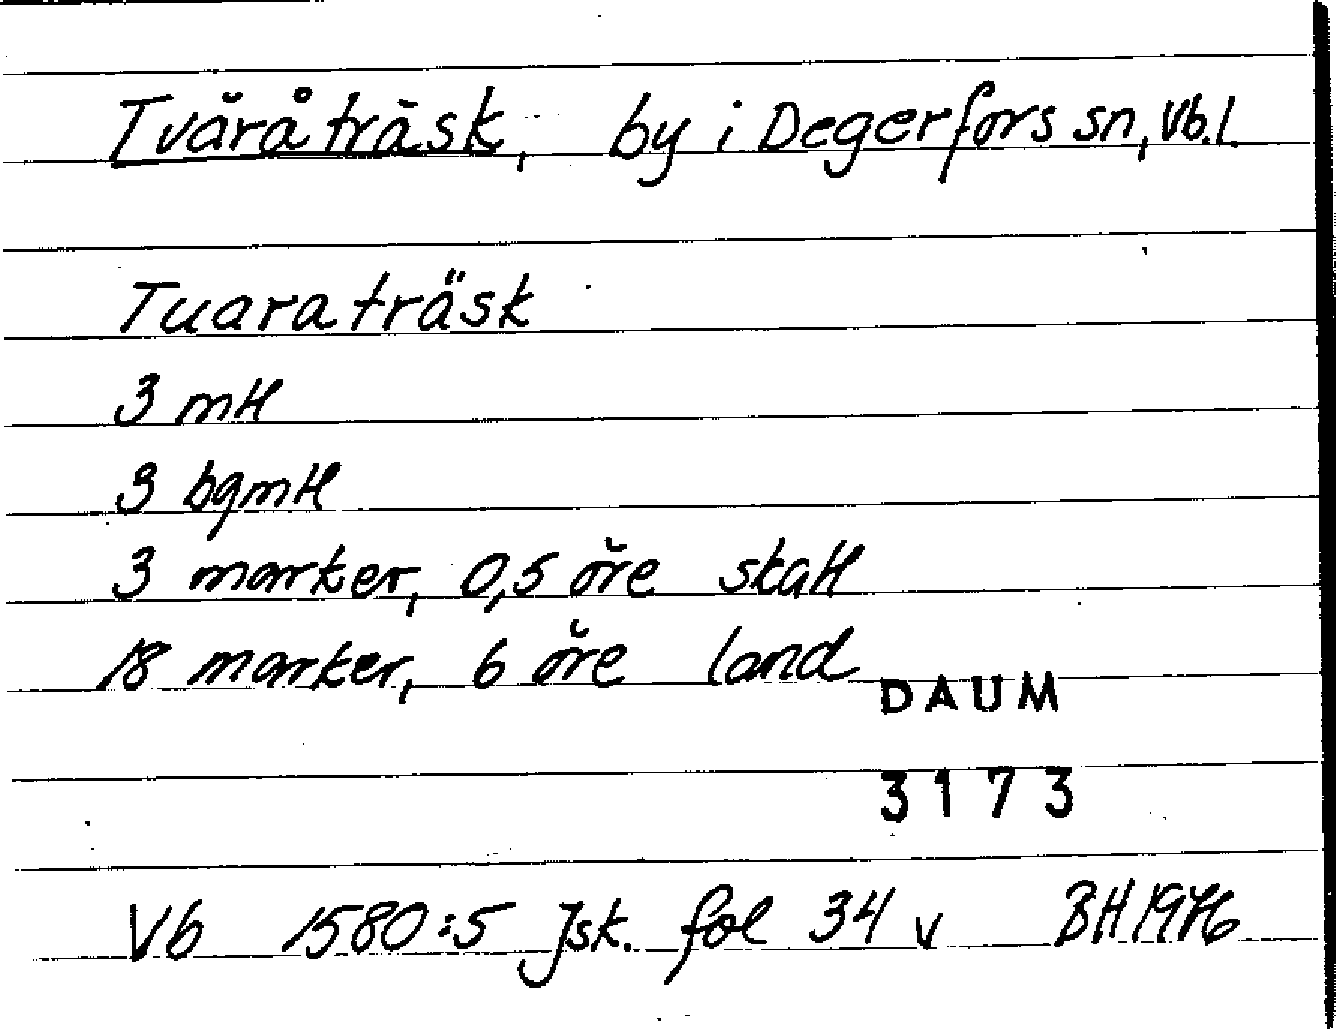 Tväråträsk, by i Degerfors sn, Vb.l.
Tuaraträsk
3 mtl
3 bgmtl
3 marker, 0,5 öre skatt
18 marker, 6 öre land
DAUM
3173
Vb 1580:5 Jsk. fol 34 v BH 1976